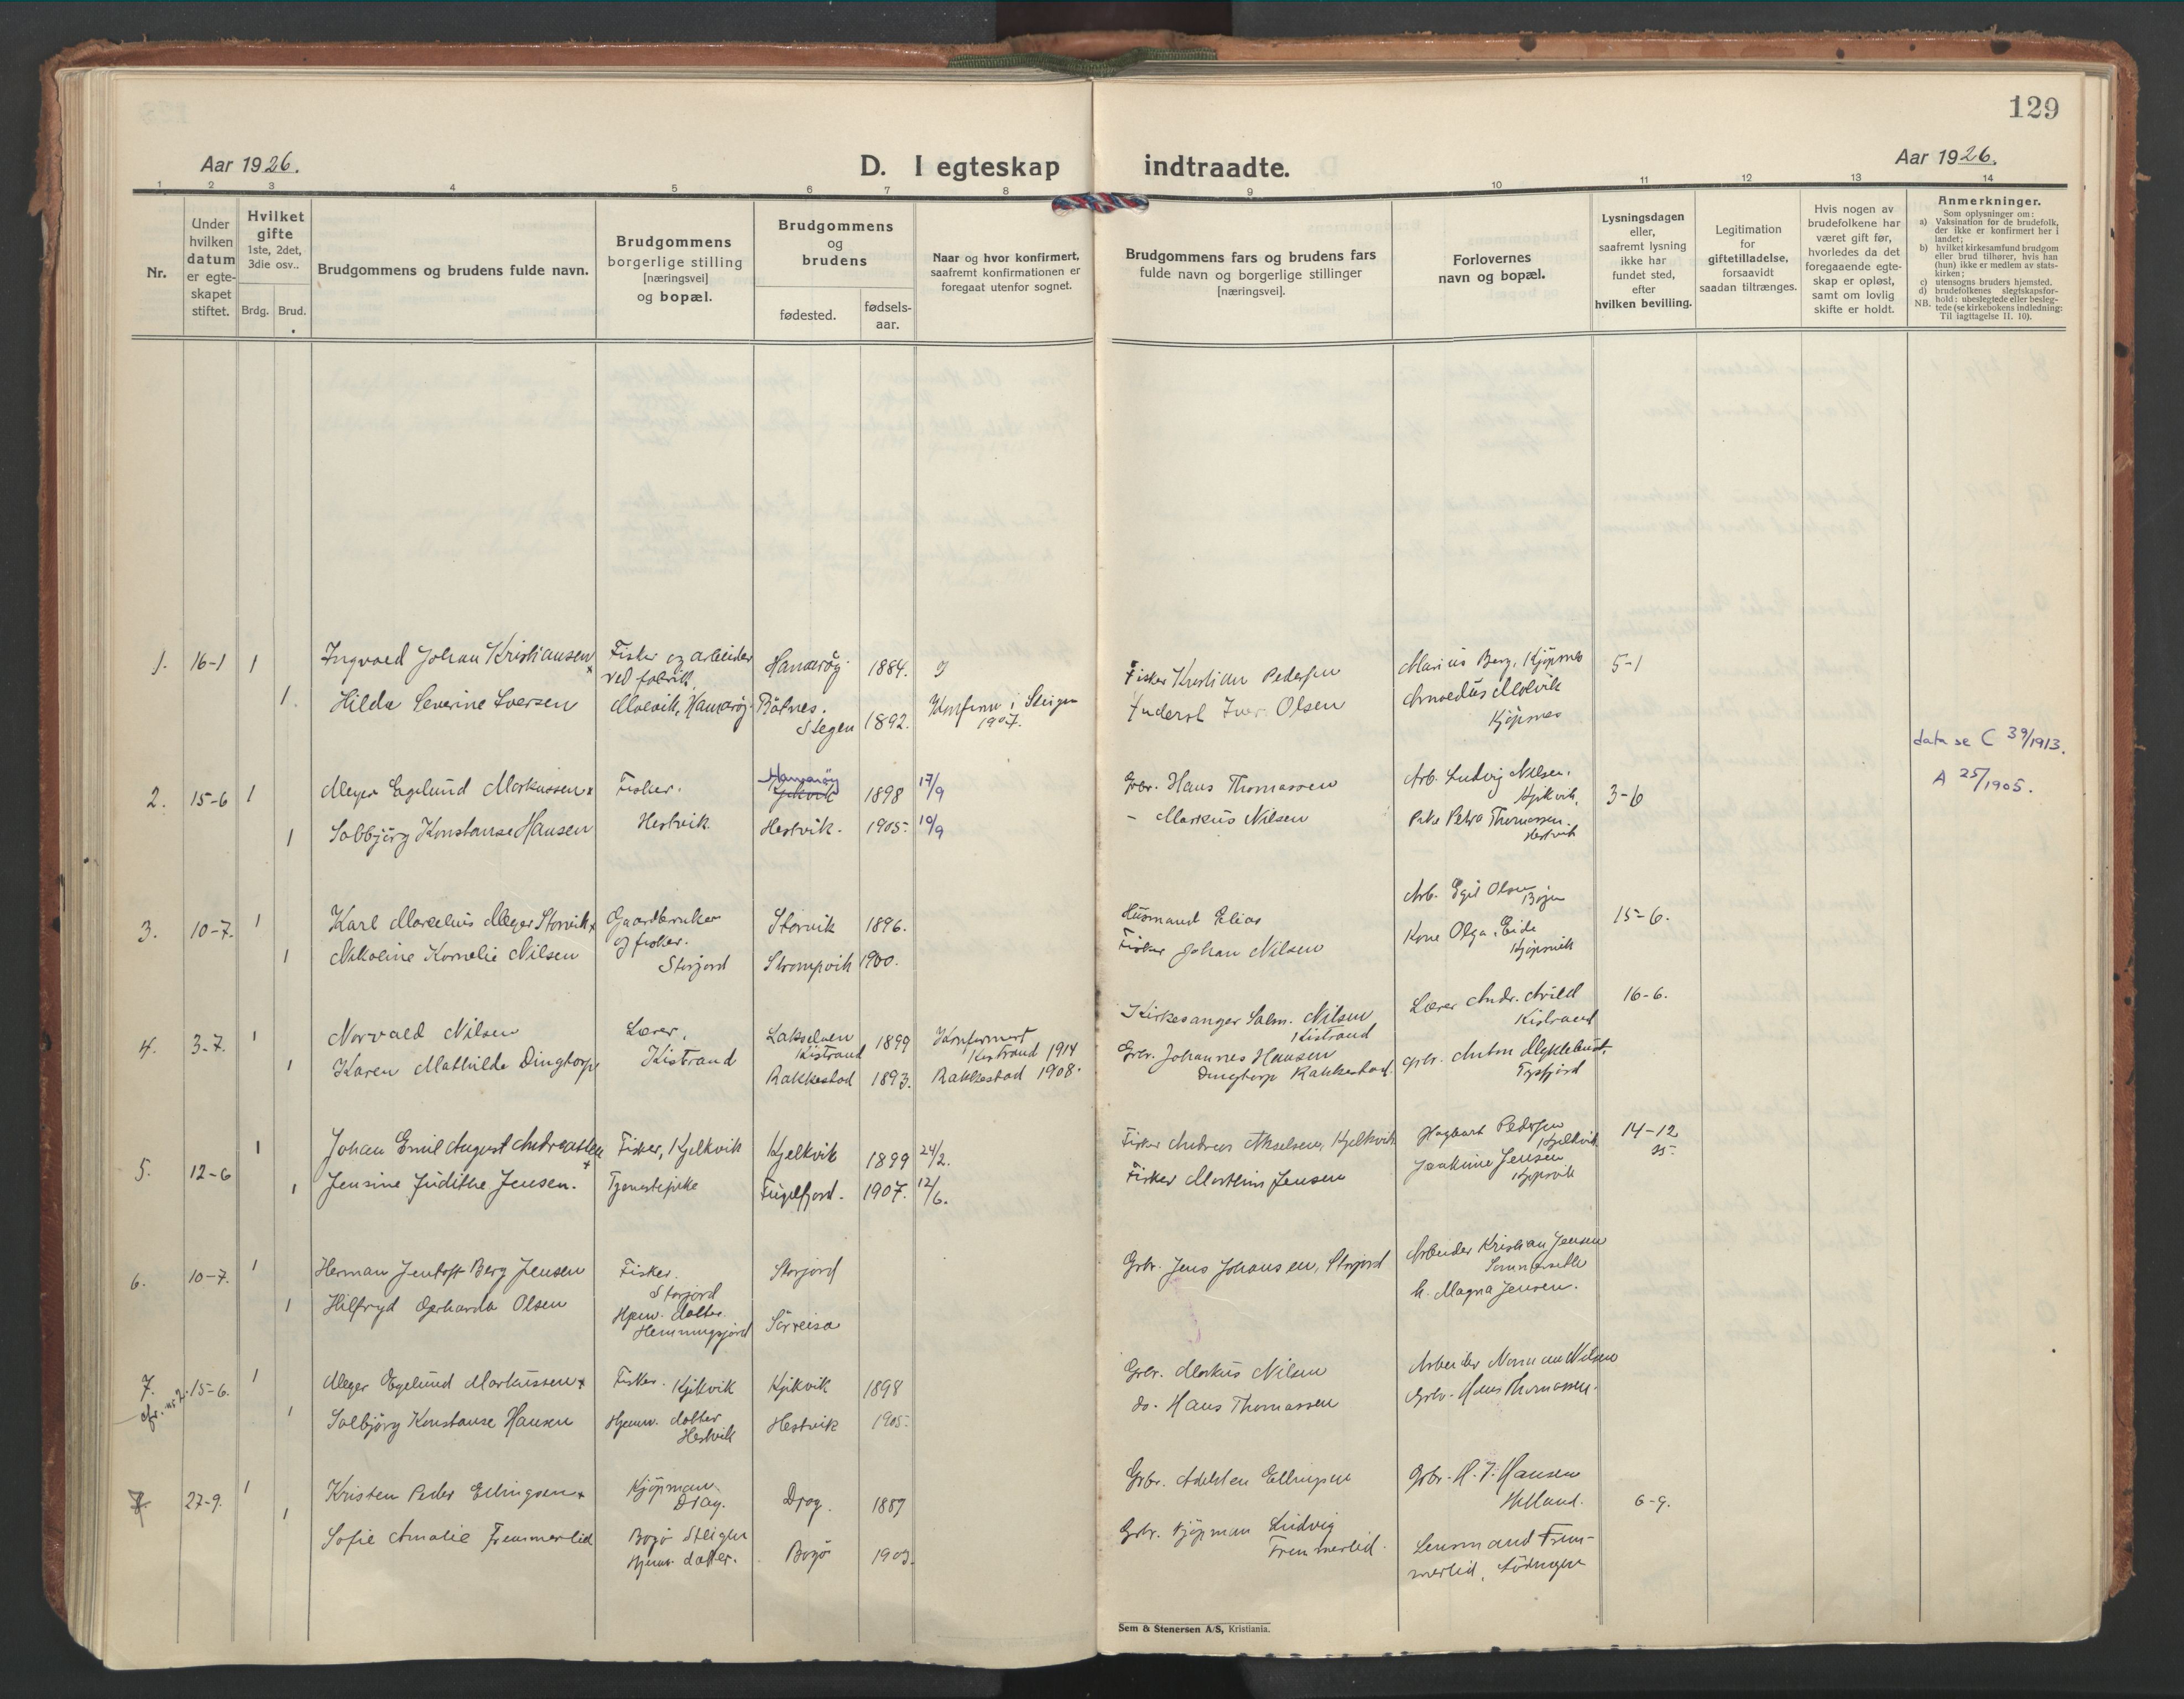 129
Aar 1926.
D. I egteskap indtraadte.
Aar 1926.
1 2 3 4 5 6 7 8 9 10 11 12 13 14
Nr.
Under hvilken datum er egte-skapet stiftet.
Hvilket gifte 1ste, 2det, 3die osv..
Brdg. Brud.
Brudgommens og brudens fulde navn.
Brudgommens borgerlige stilling [næringsvei] og bopæl.
Brudgommens og brudens
fødested.
fødsels-aar.
Naar og hvor konfirmert, saafremt konfirmationen er foregaat utenfor sognet.
Brudgommens fars og brudens fars fulde navn og borgerlige stillinger [næringsvei].
Forlovernes navn og bopæl.
Lysningsdagen eller, saafremt lysning ikke har fundet sted, efter hvilken bevilling.
Legitimation for giftetilladelse, forsaavidt saadan tiltrænges.
Hvis nogen av brudefolkene har været gift før, hvorledes da det foregaaende egte-skap er opløst, samt om lovlig skifte er holdt.
Anmerkninger.
Som oplysninger om:
a) Vaksination for de brudefolk, der ikke er konfirmert her i landet;
b) hvilket kirkesamfund brudgom eller brud tilhører, hvis han (hun) ikke er medlem av stats-kirken;
c) utensogns bruders hjemsted.
d) brudefolkenes slegtskapsfor-hold: ubeslegtede eller besleg-tede (se kirkebokens indledning:
NB. Til iagttagelse II. 10).
1. 16-1 1 Ingvald Johan Kristiansen Fisker og arbeider ved fabrik Hamarøy 1884. Fisker Kristian Pedersen Marius Berg, Kjøpsnes 5-1
1. Hilda Severine Iversen Molvik, Hamarøy Bötnes. Stegen 1892. Konfirm i Steigen 1907. Iver Olsen Arnoldus Molvik Kjøpsnes
data se C 39/1913.
A 25/1905.
2. 15-6 1 Meyer Egelund Markussen Fisker. Hamarøy Kjikvik 1898 17/9 Gbr. Hans Thomassen Arb. Ludvig Nilsen, Kjikvik, 3-6
1 Solbjörg Konstanse Hansen Hestvik Hestvik. 1905 10/9 - Markus Nilsen Pike Petra Thomassen. Hestvik
3. 10-7. 1 Karl Marcelius Meyer Storvik Gaardbruker og fisker. Storjord Storvik 1896. Husmand Elias Arb. Egil Olsen 15-6.
1 Nikoline Kornelie Nilsen 1900. Fisker Johan Nilsen Kone Olga Eide
4. 3-7. 1 Norvald Nilsen Lærer. Kistrand Lakselven Kistrand 1899 Konfirmert Kistrand 1914 Kirkesanger Salm. Nilsen Kistrand Lærer Andr. Arild Kistrand 16-6.
1 Karen Mathilde Dingtorp Rakkestad 1893. Rakkestad 1908. Gbr. Johannes Hansen Dingtorp Rakkestad. gbr. Anton Myklebust, Tysfjord
5. 12-6 1 Johan Emil August Andreassen Fisker, Kjelkvik Kjelkvik 1899 24/2. Fisker Andreas Akselsen, Kjelkvik Hagbart Pedersen Kjelkvik 14-12 25
1 Jensine Judithe Jensen. Tjenestepike Fuglfjord. 1907. 12/6. Fisker Martin Jensen Joakime Jensen
6. 10-7. 1 Herman Jentoft Berg Jensen Fisker. Storjord Storjord Gbr. Jens Johansen, Storjord Arbeider Kristian Jensen
1 Hilfryd Gerharda Olsen Hjemv. datter. Hemmingsjord Sörreisa h. Magna Jensen.
7. cfr. nr. 2. 15-6. 1 Meyer Egelund Markussen Fisker. Kjikvik Kjikvik 1898 Gbr. Markus Nilsen Arbeider Norman Nilsen
1 Solbjörg Konstanse Hansen Hjemv. datter Hestvik Hestvik 1905 do. Hans Thomassen Gbr. Hans Thomassen.
7. 27-9. 1 Kristen Peder Ellingsen Kjöpman Drag. Drag. 1887 Gbr. Adelsten Ellingsen Gbr. H. J. Hansen 6-9.
1 Sofie Amalie Fremmerlid Bogö Steigen Hjemv. datter. Bogö 1903. Gbr. kjöpman Ludvig Fremmerlid. Lensmand Fremmerlid, Lödingen
Sem & Stenersen A/S, Kristiania.